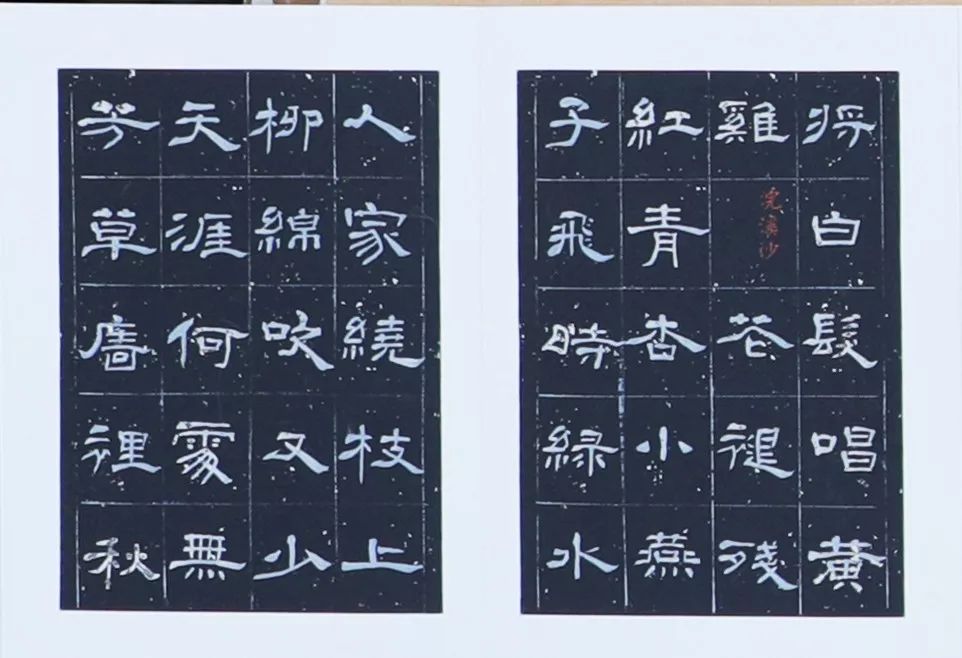 将白髮唱黄
雞
浣溪沙
花褪殘
紅青杏小燕
子飛時緑水
人家繞枝上
柳綿吹又少
天涯何處無
芳草廧裡秋